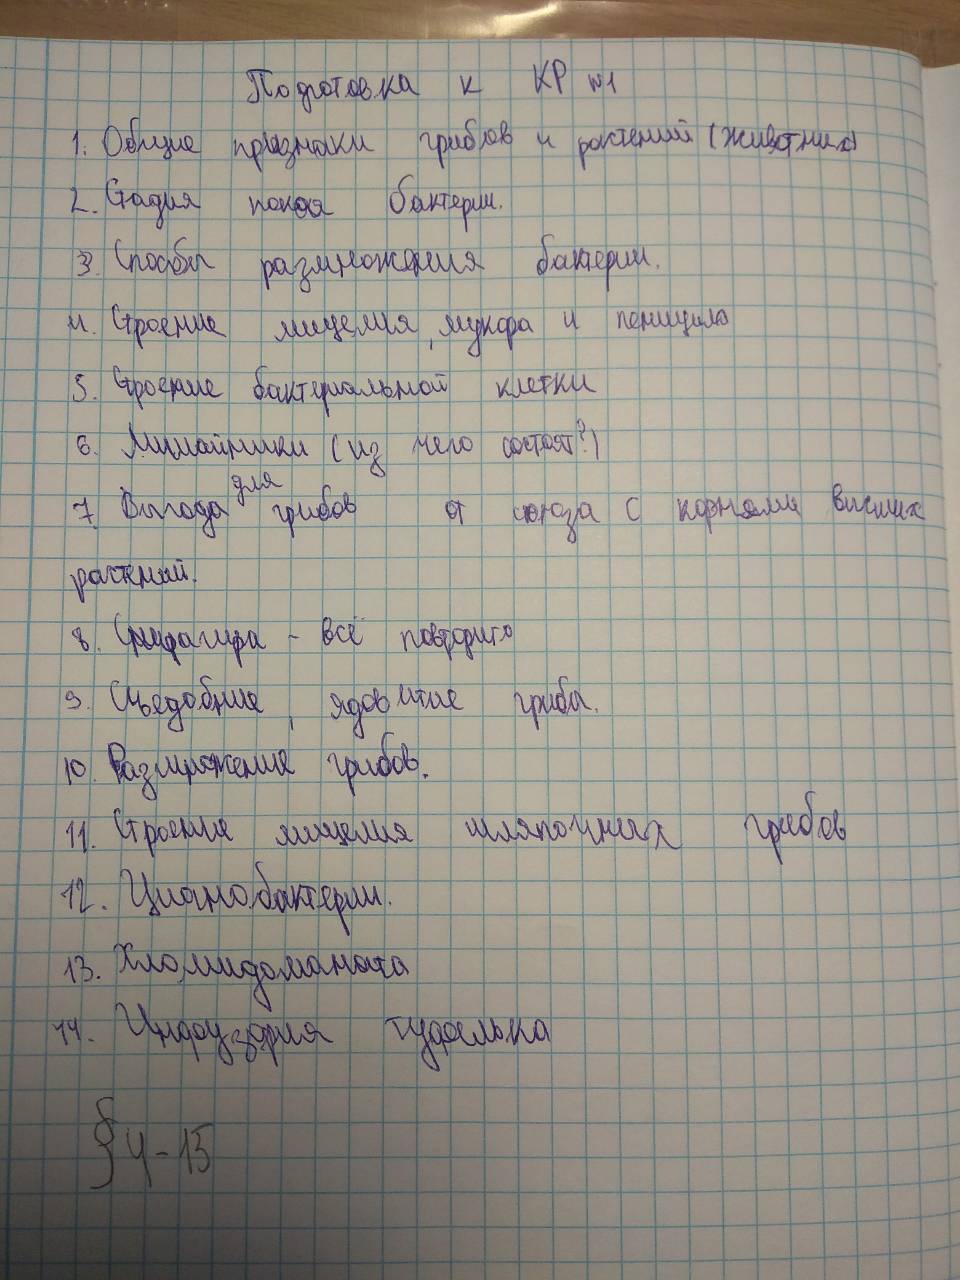 Подготовка к КР №1
1. Общие признаки грибов и растений (животных)
2. Стадия покоя бактерии.
3. Способы размножения бактерии.
4. Строение мицелия, мукора и пеницила
5. Строение бактериальной клетки
6. Лишайники (из чего состоят?)
7. Выгода для грибов от союза с корнями высших
растений.
8. Спирогира - всё повторить
9. Съедобные, ядовитые грибы.
10. Размножение грибов.
11. Строение мицелия шляпочных грибов
12. Цианобактерии.
13. Хломидоманада
14. Инфузория туфелька
§ 4-15